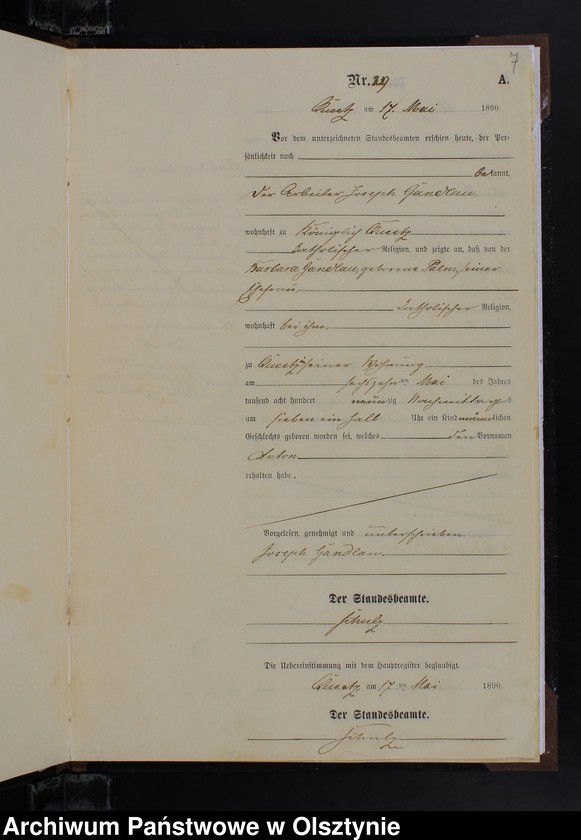 7
Nr. 29 A.
Queetz am 17. Mai 1890.
Vor dem unterzeichneten Standesbeamten erschien heute, der Per-
sönlichkeit nach
bekannt,
der Arbeiter Joseph Gandlau
wohnhaft zu Königlich Queetz
katholischer Religion, und zeigte an, daß von der
Barbara Gandlau, geborene Palm, seiner
Ehefrau,
katholischer Religion,
wohnhaft bei ihm,
zu Queetz seiner Wohnung
am sechszehnten Mai des Jahres
tausend acht hundert neunzig Nachmittags
um sieben ein halb Uhr ein Kind männlichen
Geschlechts geboren worden sei, welches den Vornamen
Anton
erhalten habe.
Vorgelesen, genehmigt und unterschrieben
Joseph Gandlau.
Der Standesbeamte.
Schulz
Die Uebereinstimmung mit dem Hauptregister beglaubigt.
Queetz am 17ten Mai 1890.
Der Standesbeamte.
Schulz
Archiwum Państwowe w Olsztynie